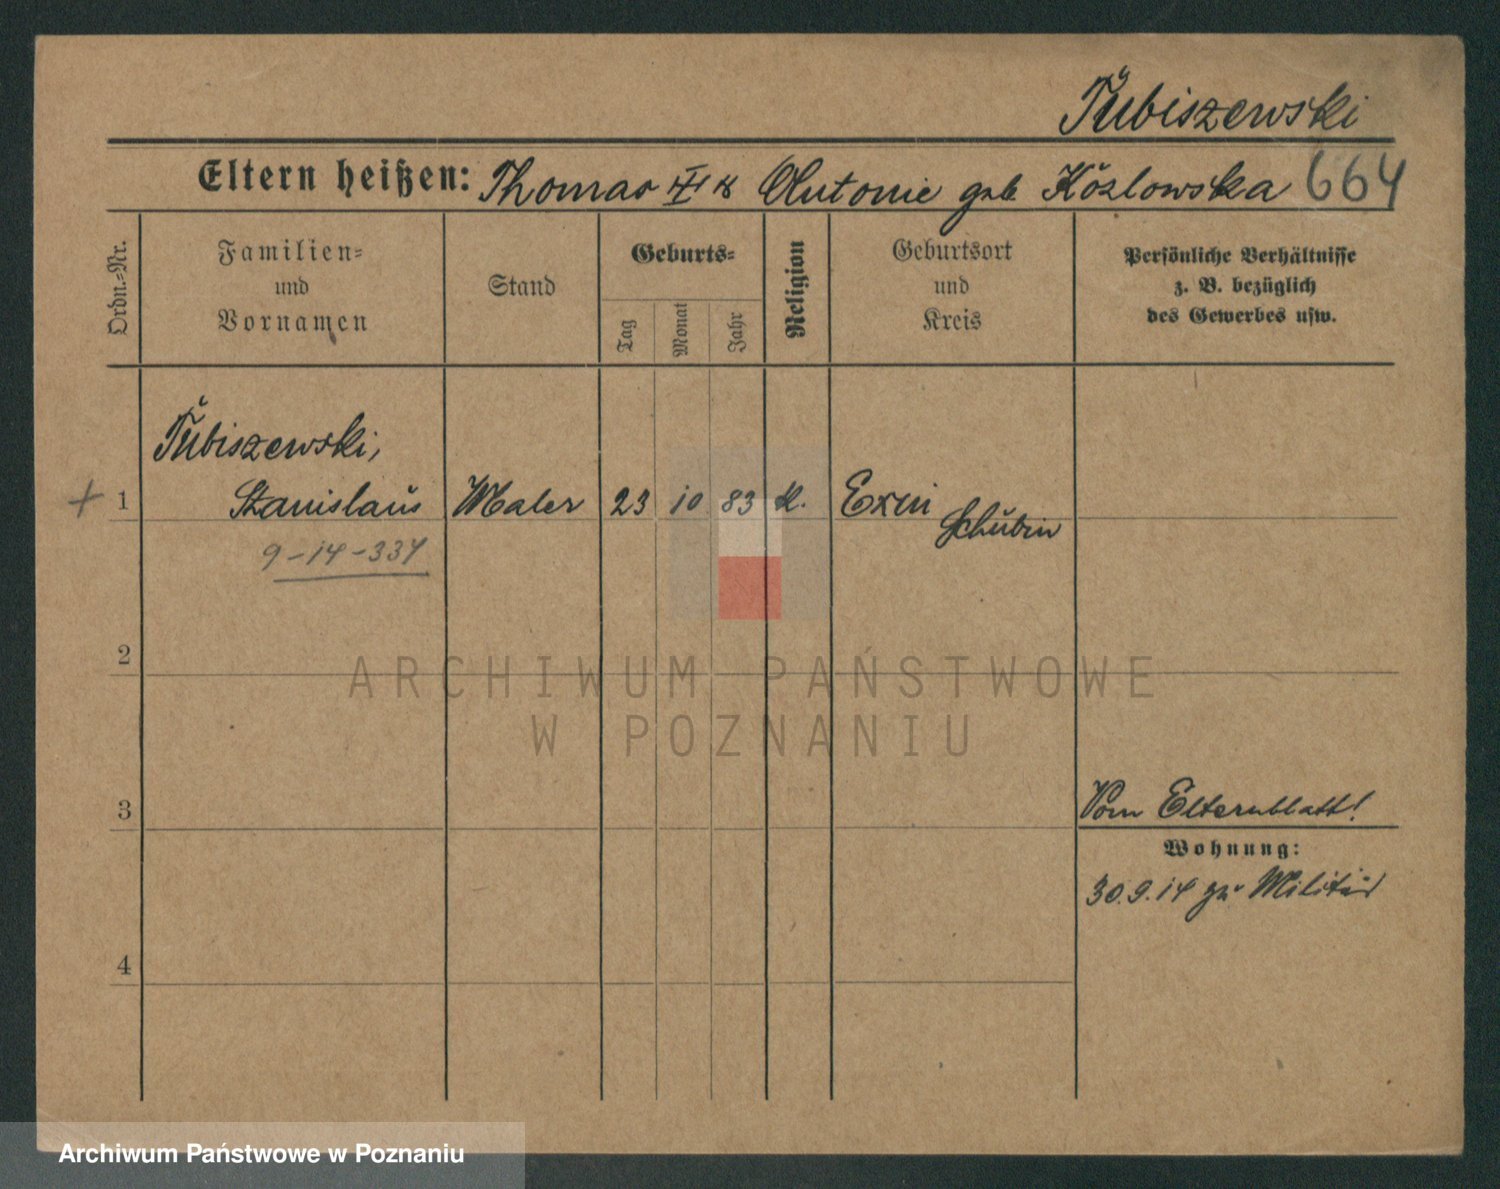 Tubiszewski
Eltern heißen: Thomas III & Antonie geb Kozlowska 664
Ordn.-Nr.
Familien-
und
Vornamen
Stand
Geburts-
Tag
Monat
Jahr
Religion
Geburtsort
und
Kreis
Persönliche Verhältnisse
z. B. bezüglich
des Gewerbes usw.
Tubiszewski,
+ 1 Stanislaus Maler 23 10 83 k. Exin
Schubin
9-14-334
2
ARCHIWUM PAŃSTWOWE
W POZNANIU
3 Vom Elternblatt!
Wohnung:
30.9.14 zu Militär
4
Archiwum Państwowe w Poznaniu